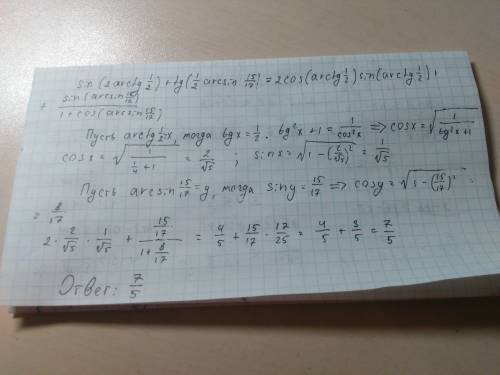 sin(2arctg 1/2) + tg(1/2 arcsin 15/17) = 2cos(arctg 1/2) sin(arctg 1/2) +
+ sin(arcsin 15/17) / 1+cos(arcsin 15/17)
Пусть arctg 1/2 = x, тогда tgx = 1/2. tg²x + 1 = 1/cos²x => cosx = √(1/(tg²x+1))
cosx = √(1/(1/4+1)) = 2/√5 ; sinx = √(1-(2/√5)²) = 1/√5
Пусть arcsin 15/17 = y, тогда siny = 15/17 => cosy = √(1-(15/17)²) =
= 8/17
2 · 2/√5 · 1/√5 + (15/17)/(1+8/17) = 4/5 + 15/17 · 17/25 = 4/5 + 3/5 = 7/5
Ответ: 7/5